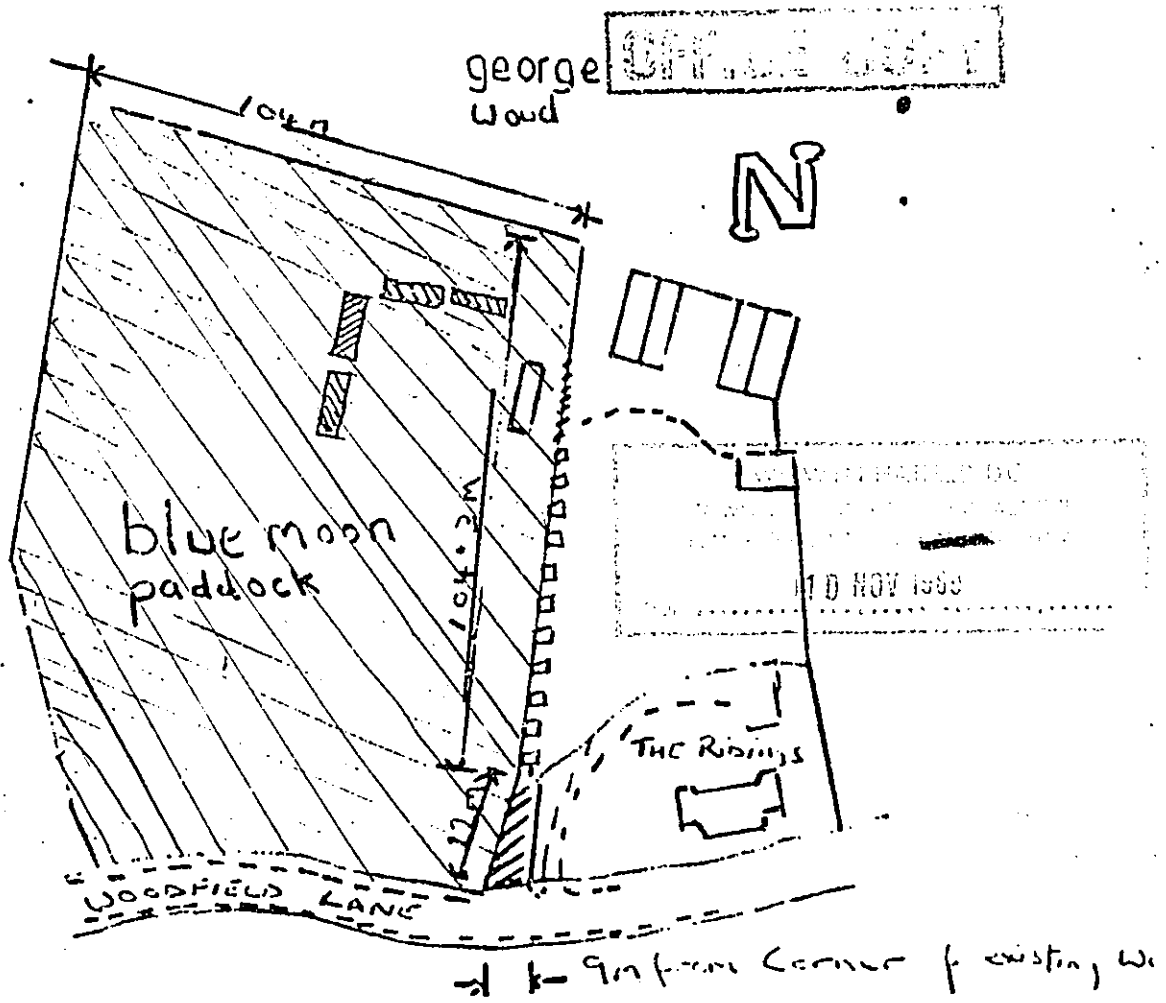 george
wood
OFFICE COPY
104 m
N
blue moon
paddock
104.2m
10 NOV
THE RIDINGS
22m
WOODFIELD LANE
9m from Corner of existing